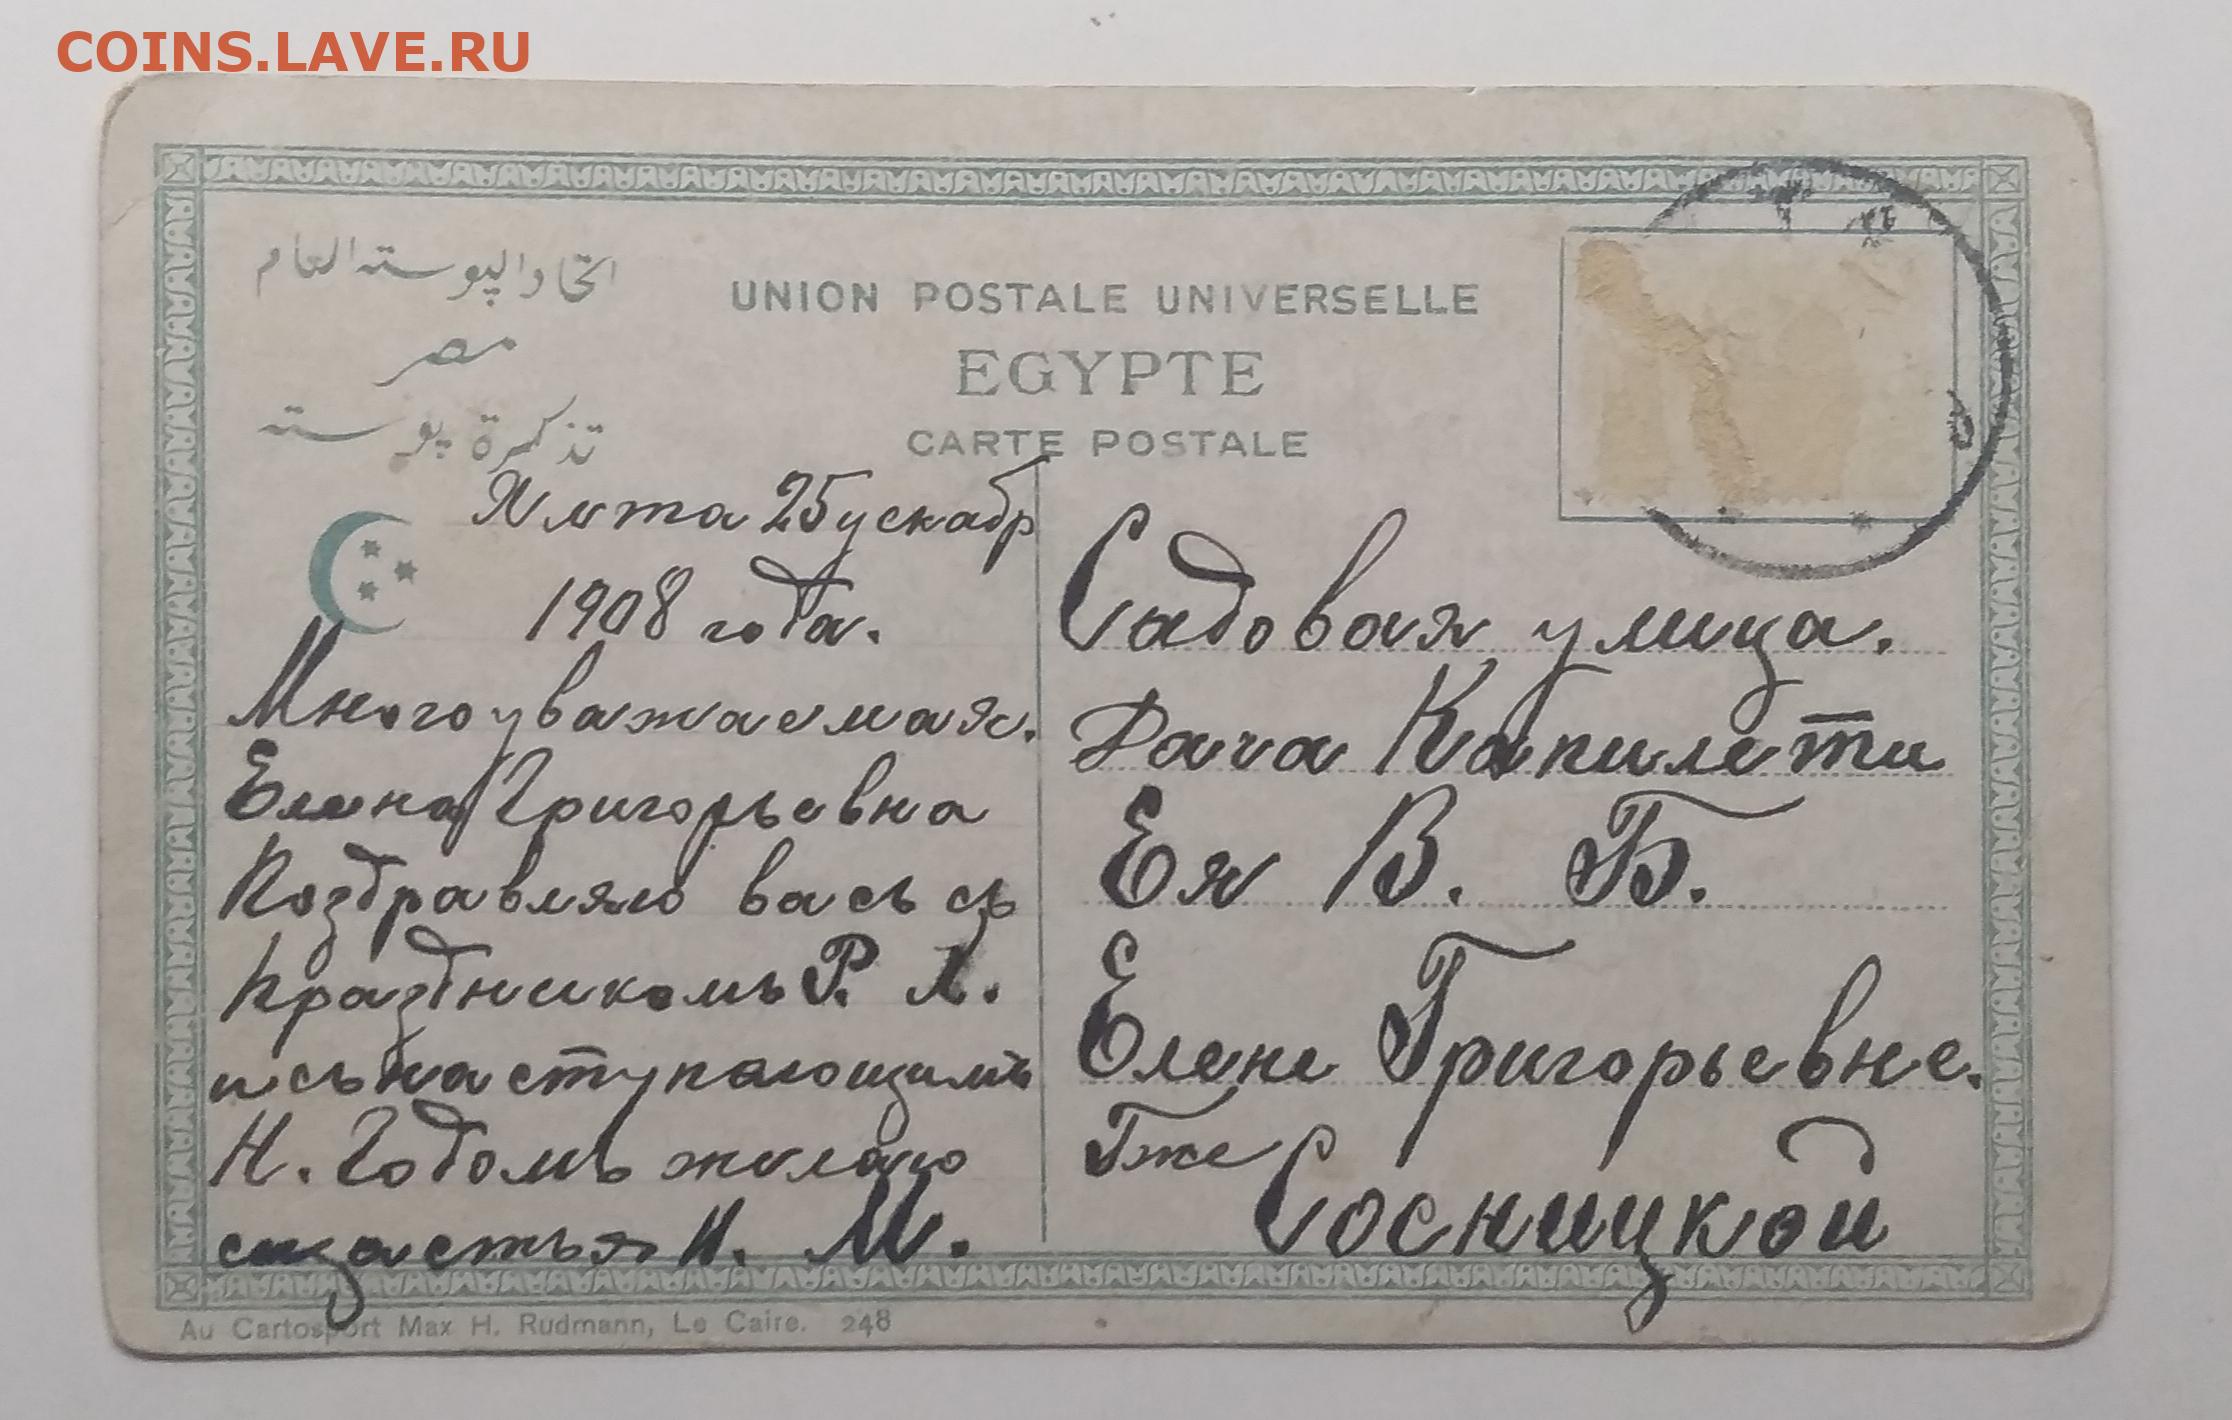 COINS.LAVE.RU
اتحاد البوسته العام
مصر
تذكرة بوسته
UNION POSTALE UNIVERSELLE
EGYPTE
CARTE POSTALE
Ялта 25 декабр
1908 года.
Многоуважаемая.
Елена Григорьевна
Поздравляю васъ съ
праздникомъ Р. Х.
и съ наступающимъ
Н. Годомъ желаю
счастья Н. М.
Садовая улица.
Дача Капилети
Ея В. Б.
Елене Григорьевне.
Гже
Сосницкой
Au Cartosport Max H. Rudmann, Le Caire. 248